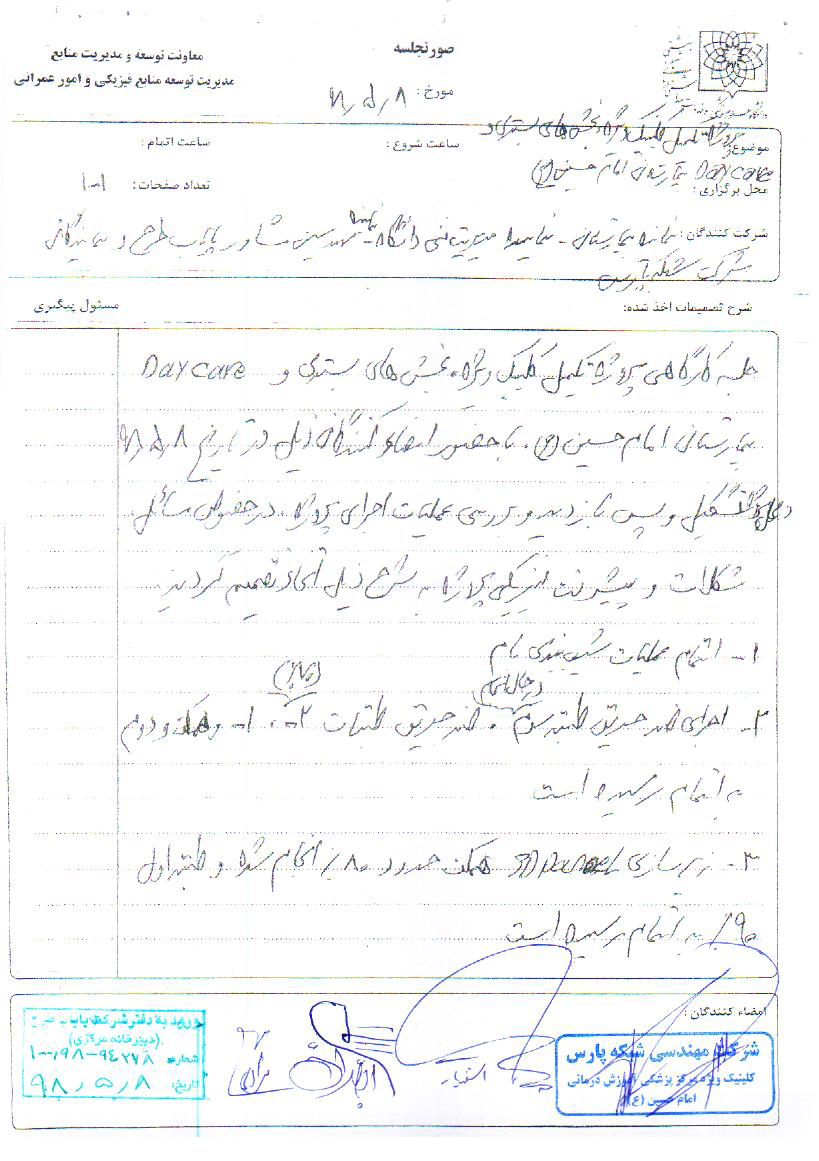 صورتجلسه
معاونت توسعه و مدیریت منابع
مدیریت توسعه منابع فیزیکی و امور عمرانی
مورخ : ۹۸٫۵٫۸
موضوع: پروژه تکمیل کلینیک ویژه، بخش های بستری و
Day care بیمارستان امام حسین (ع)
ساعت شروع :
ساعت اتمام :
محل برگزاری :
تعداد صفحات : ۱-۱
شرکت کنندگان : نماینده بیمارستان - نماینده مدیریت فنی دانشگاه - نماینده مهندسین مشاور پایاب طرح و نمایندگان
شرکت شبکه پارس
شرح تصمیمات اخذ شده:
مسئول پیگیری
جلسه کارگاهی پروژه تکمیل کلینیک ویژه، بخش های بستری و Day care
بیمارستان امام حسین (ع)، با حضور امضاء کنندگان ذیل در تاریخ ۹۸٫۵٫۸
در محل پروژه تشکیل و پس بازدید و بررسی عملیات اجرای پروژه، در خصوص مسائل،
مشکلات و پیشرفت فیزیکی پروژه به شرح ذیل اتخاذ تصمیم گردید.
۱- اتمام عملیات شیب بندی بام
۲- اجرای ضد حریق طبقه سوم در حال انجام، ضد حریق طبقات ۲-، ۱- و همکف و دوم
به اتمام رسیده است
۳- زیرسازی 3D Panel همکف حدود ۸۰٪ انجام شده و طبقه اول
۹۰٪ به اتمام رسیده است
امضاء کنندگان :
شرکت مهندسی شبکه پارس
کلینیک ویژه مرکز پزشکی آموزش درمانی
امام حسین (ع)
ورود به دفتر شرکت پایاب طرح
(دبیرخانه مرکزی)
شماره: ۱۰۰٫۹۸-۹۴۲۷۸
تاریخ: ۹۸٫۵٫۸